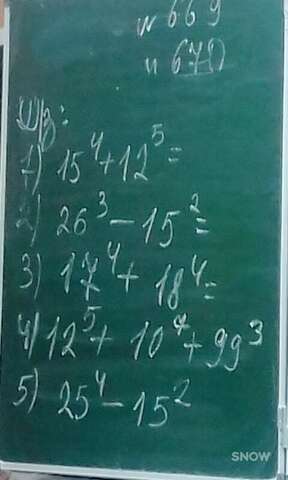 N 669
N 670
Д/з:
1) 15⁴+12⁵=
2) 26³-15²=
3) 17⁴+18⁴=
4) 12⁵+10⁴+99³
5) 25⁴-15²
SNOW